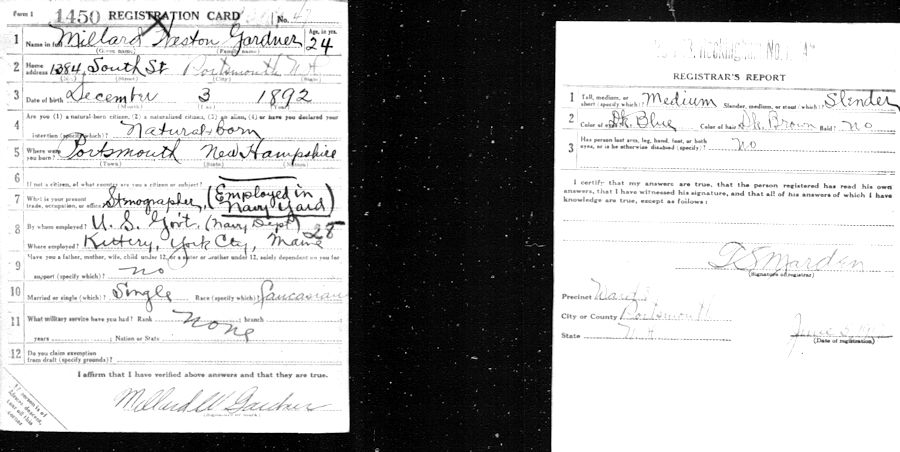 Form 1 1450 REGISTRATION CARD No. 47
1 Name in full Millard Weston Gardner Age, in yrs. 24
(Given name) (Family name)
2 Home address 1384 South St Portsmouth N.H.
(No.) (Street) (City) (State)
3 Date of birth December 3 1892
(Month) (Day) (Year)
4 Are you (1) a natural-born citizen, (2) a naturalized citizen, (3) an alien, (4) or have you declared your
intention (specify which)? Natural-born
5 Where were you born? Portsmouth New Hampshire
(Town) (State) (Nation)
6 If not a citizen, of what country are you a citizen or subject?
7 What is your present trade, occupation, or office? Stenographer, (Employed in Navy Yard)
8 By whom employed? U. S. Gov't, (Navy Dept) 28
Where employed? Kittery, York Cty, Maine
9 Have you a father, mother, wife, child under 12, or a sister or brother under 12, solely dependent on you for
support (specify which)? no
10 Married or single (which)? Single Race (specify which)? Caucasian
11 What military service have you had? Rank None ; branch
years ; Nation or State
12 Do you claim exemption
from draft (specify grounds)?
I affirm that I have verified above answers and that they are true.
Millard W Gardner
(Signature or mark)
If person is of
African descent,
tear off this
corner
REGISTRAR'S REPORT
1 Tall, medium, or short (specify which)? Medium Slender, medium, or stout (which)? Slender
2 Color of eyes? Dk. Blue Color of hair? Dk. Brown Bald? No
3 Has person lost arm, leg, hand, foot, or both
eyes, or is he otherwise disabled (specify)? No
I certify that my answers are true, that the person registered has read his own
answers, that I have witnessed his signature, and that all of his answers of which I have
knowledge are true, except as follows:
Marden
(Signature of registrar)
Precinct Ward
City or County Portsmouth
State N.H.
June 5, 1917
(Date of registration)